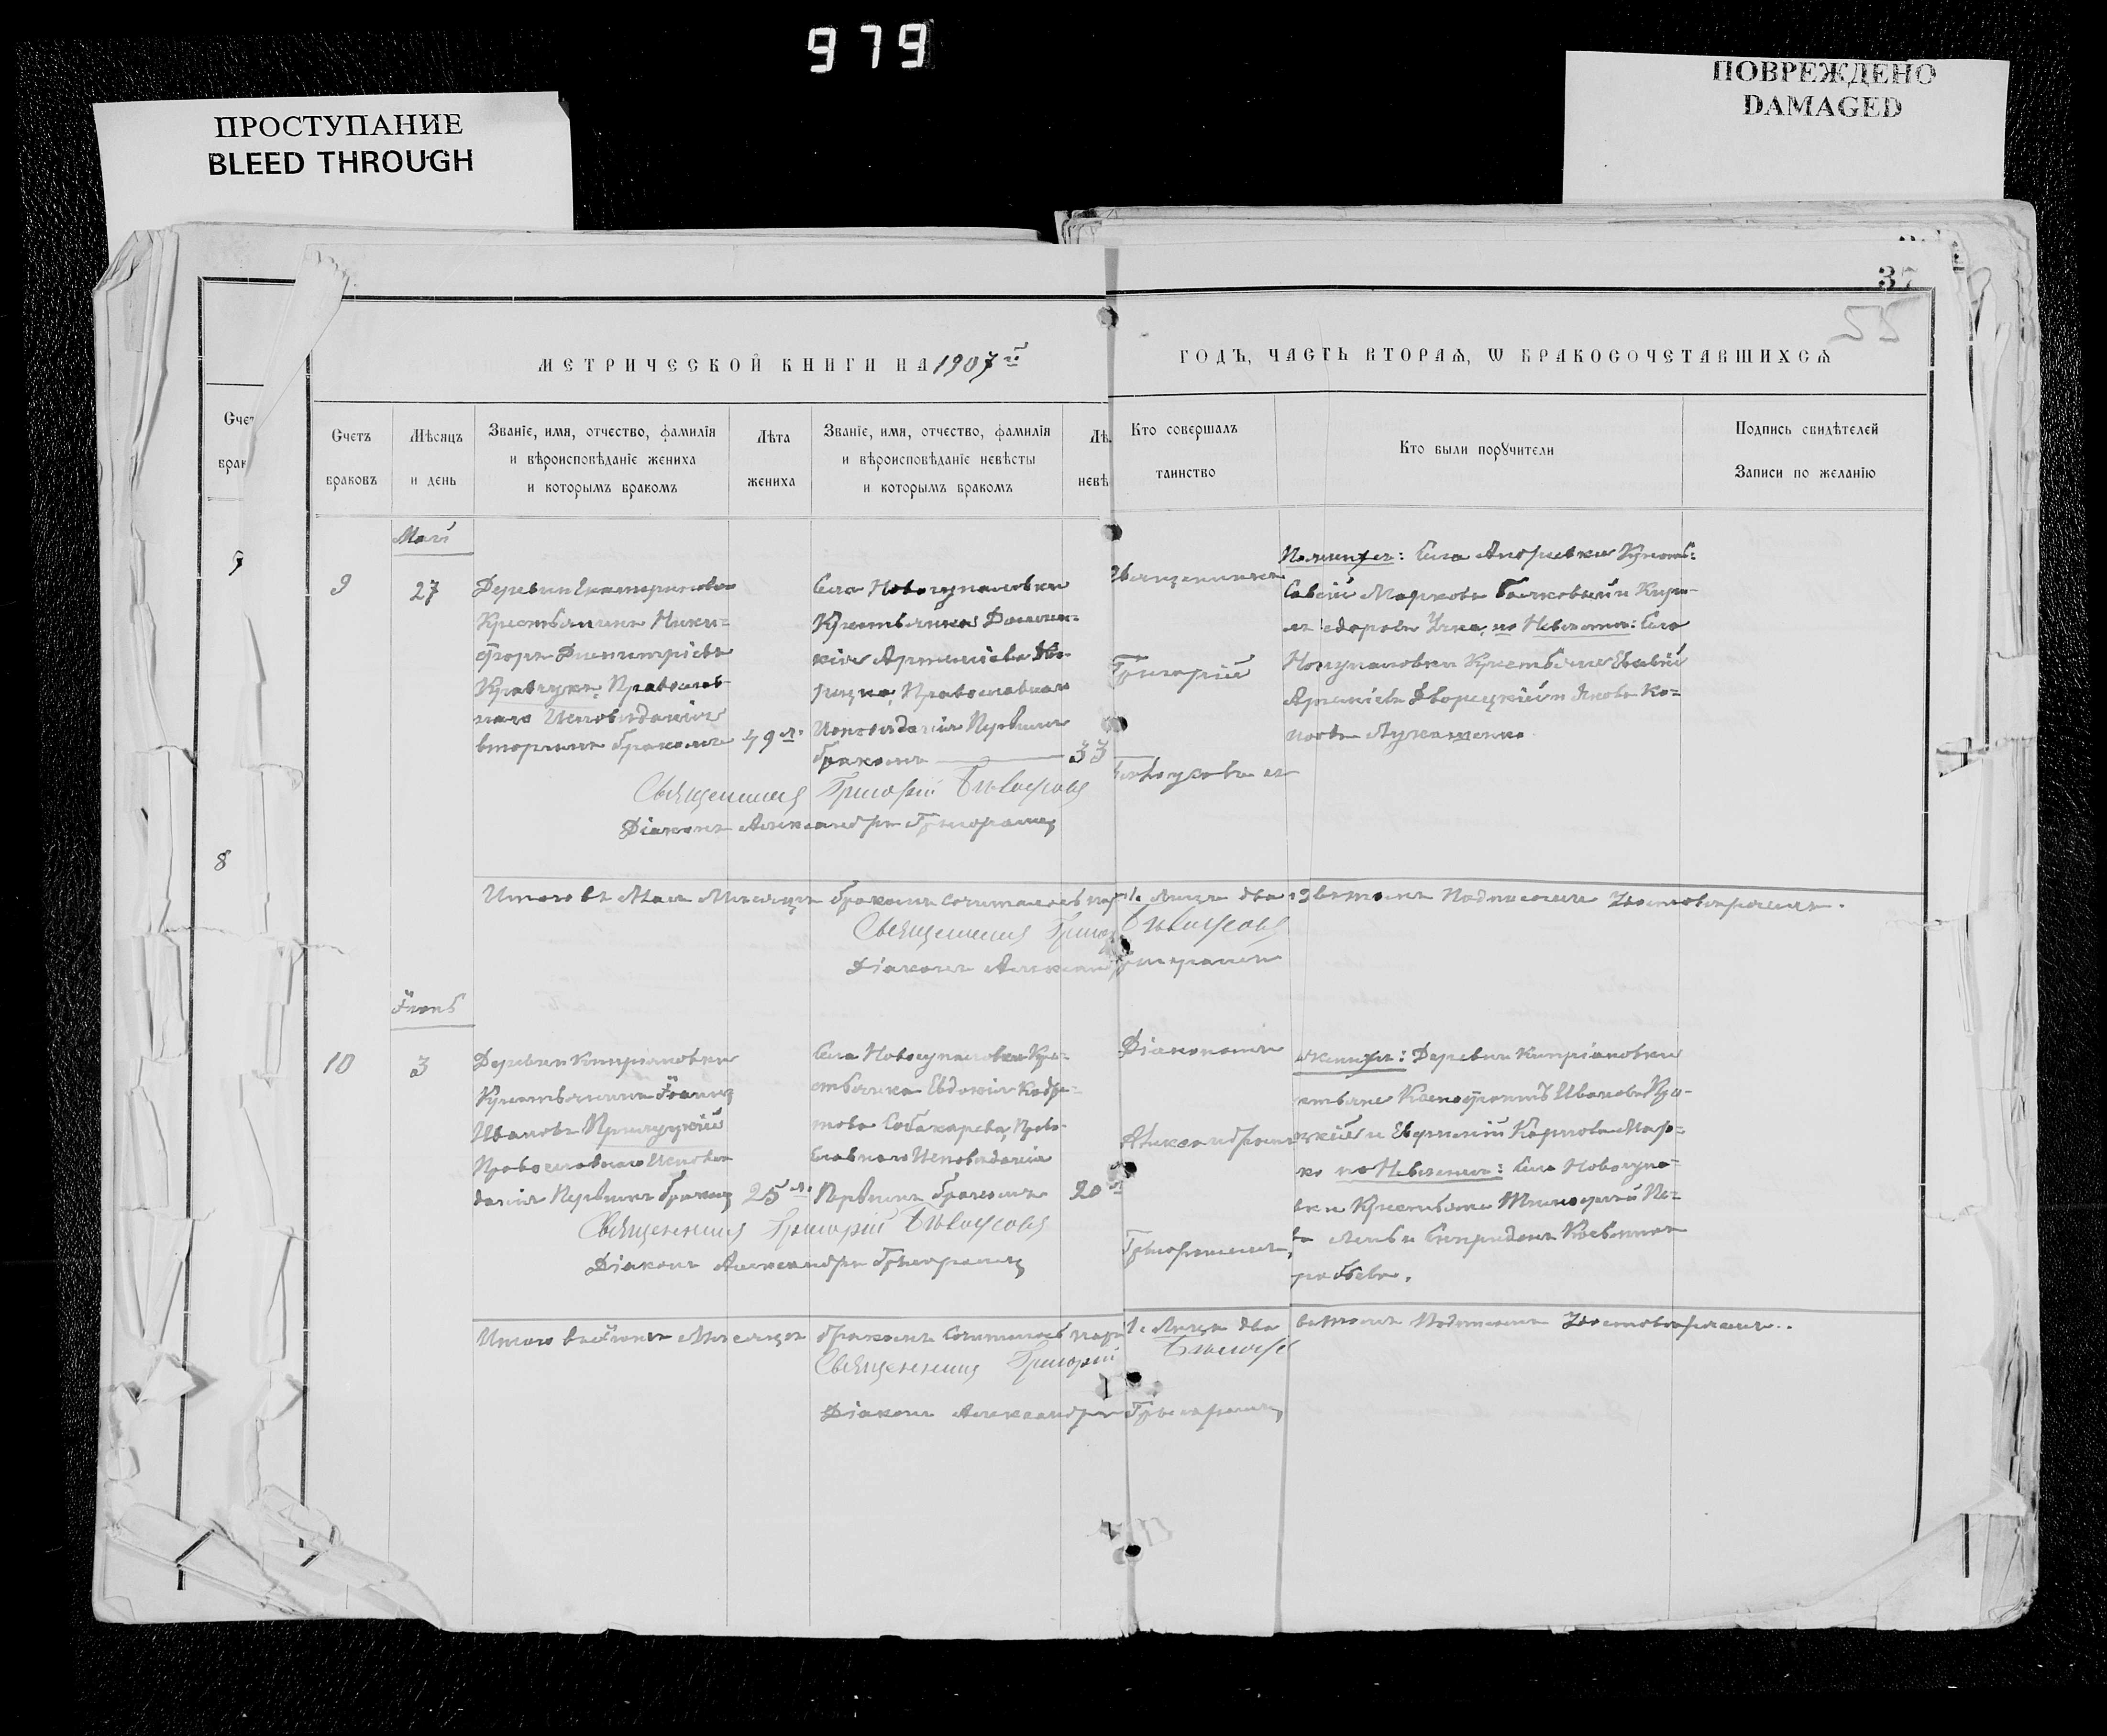 979
ПРОСТУПАНИЕ
BLEED THROUGH
ПОВРЕЖДЕНО
DAMAGED
37
55
МЕТРИЧЕСКОЙ КНИГИ НА 1907 й
ГОДЪ, ЧАСТЬ ВТОРАѦ, Ѡ БРАКОСОЧЕТАВШИХСѦ
Счет
брак
7
8
Счетъ
браковъ
Мѣсяцъ
и день
Званіе, имя, отчество, фамилія
и вѣроисповѣданіе жениха
и которымъ бракомъ
Лѣта
жениха
Званіе, имя, отчество, фамилія
и вѣроисповѣданіе невѣсты
и которымъ бракомъ
Лѣ
невѣ
Кто совершалъ
таинство
Кто были порꙋчители
Подпись свидѣтелей
Записи по желанію
Май
9
27
Деревни Екатериновки
Крестьянинъ Ники=
форъ Димитріевъ
Кравчукъ, Православ-
наго Исповѣданія
вторымъ бракомъ
49 л.
Села Новогупаловки
Крестьянка Домни-
кія Арте­міева Дво-
рецка, Православнаго
Исповѣданія Первымъ
бракомъ
33
Священникъ
Григорій
Бѣлоусовъ и
По женихѣ: Села Андреевки Крестьяне:
Савій Марковъ и Кири-
по Невѣстѣ: Села
Крестьяне
Дворецкій и Яковъ Ко-
Лукашенко
Священникъ Григорій Бѣлоусовъ
Діаконъ Александръ Григорашъ
Итого въ Маѣ Мѣсяцѣ бракомъ сочеталось пар 1. Лица два въ томъ Подписомъ Удостовѣряемъ.
Священникъ Григор Бѣлоусовъ
Діаконъ Александ Григорашъ
Іюнь
10
3
Деревни Кипріяновки
Крестьянинъ Іоаннъ
Ивановъ Прилуцкій
Православнаго Исповѣ
данія Первымъ бракомъ
25 л.
Села Новогупаловки Кре-
стьянка Евдокія Кодра-
това Собакарева, Право-
славнаго Исповѣданія
Первымъ бракомъ
20 л.
Діакономъ
Александромъ
Григорашемъ
женихѣ: Деревни Кипріановки
стьяне Ивановъ При-
цкій и Евфимій Карповъ Мар-
ко по Невѣстѣ: Села Новогупа-
вки Крестьяне Тимофей Пе-
и Спиридонъ
Священникъ Григорій Бѣлоусовъ
Діаконъ Александръ Григорашъ
Итого въ Іюнѣ Мѣсяцѣ бракомъ сочеталось пара 1. Лица два въ томъ Подписомъ Удостовѣряемъ.
Священникъ Григорій Бѣлоус
Діаконъ Александръ Григорашъ